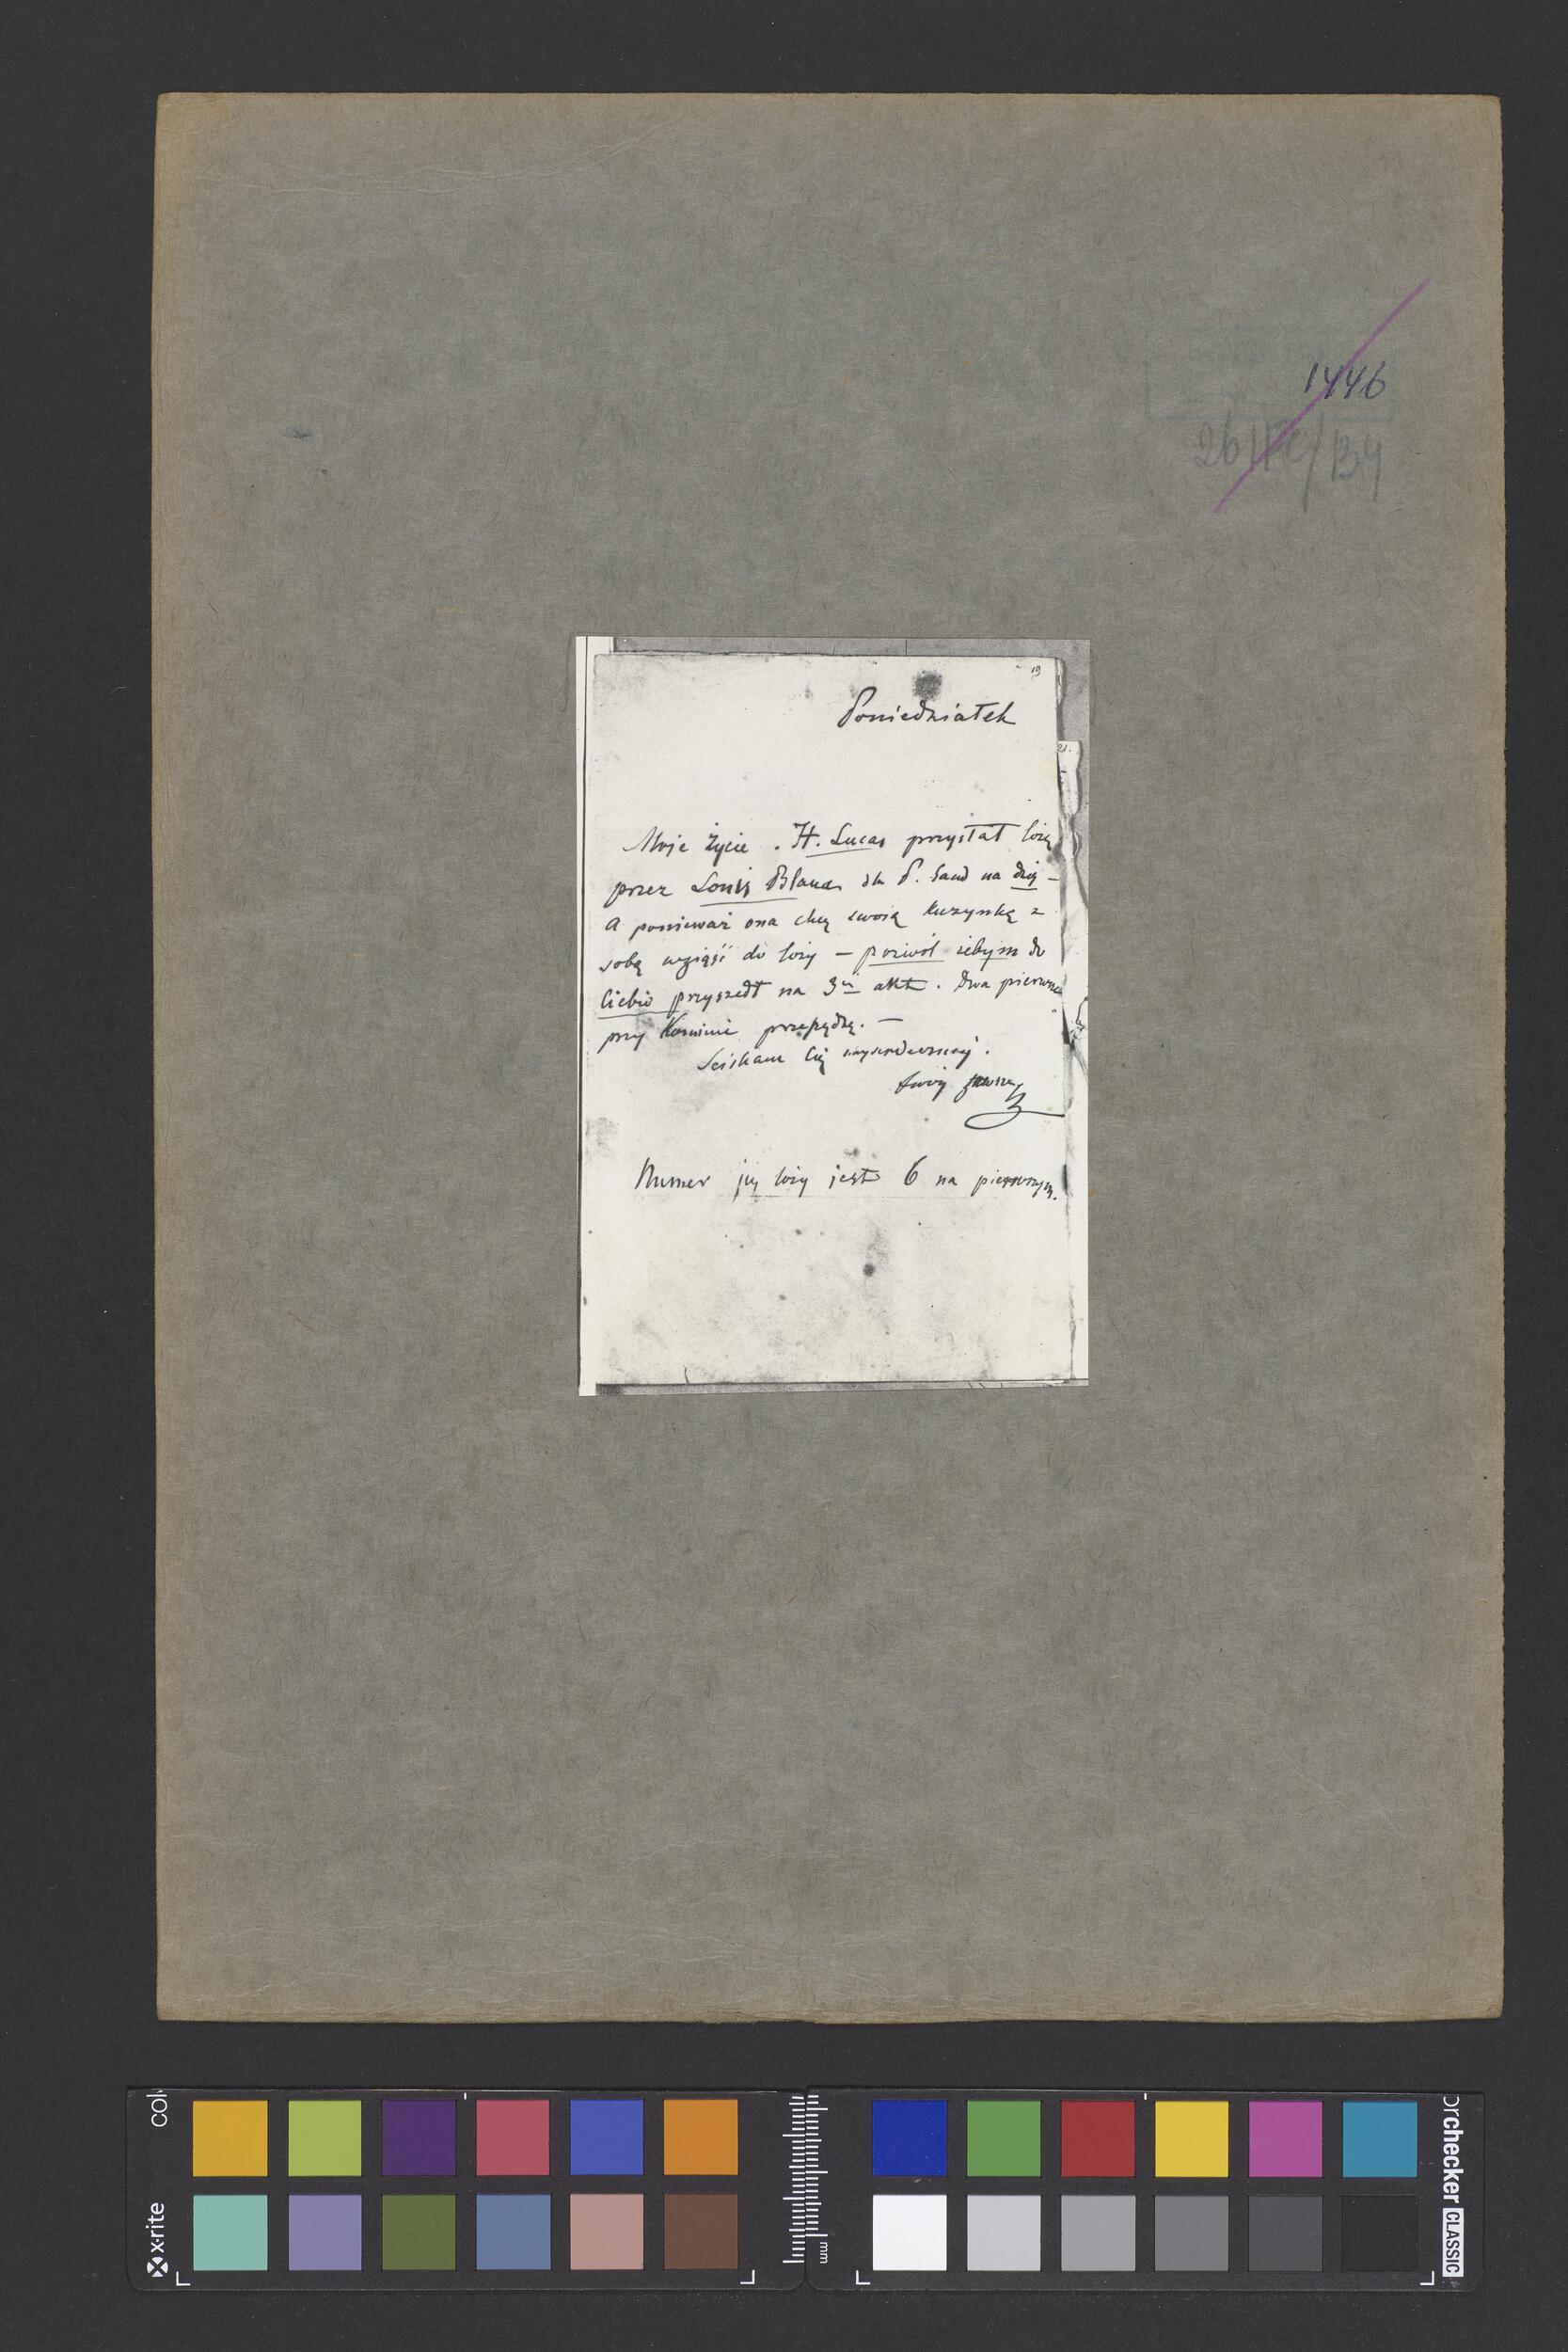 1446
19
Poniedziałek
21.
Moje Życie. H. Lucas przysłał lożę
przez Louis Blanca dla P. Sand na dziś –
A ponieważ ona chcę swoią Kuzynkę z
sobą wziąść do loży – pozwól żebym do
Ciebie przyszedł na 3ci akt. Dwa pierwsze
przy Kominie przepędzę. –
Ściskam Cię nayserdeczniej.
Twój zawsze
Numer jey loży jest 6 na pierwszym.
x·rite
colorchecker CLASSIC
mm